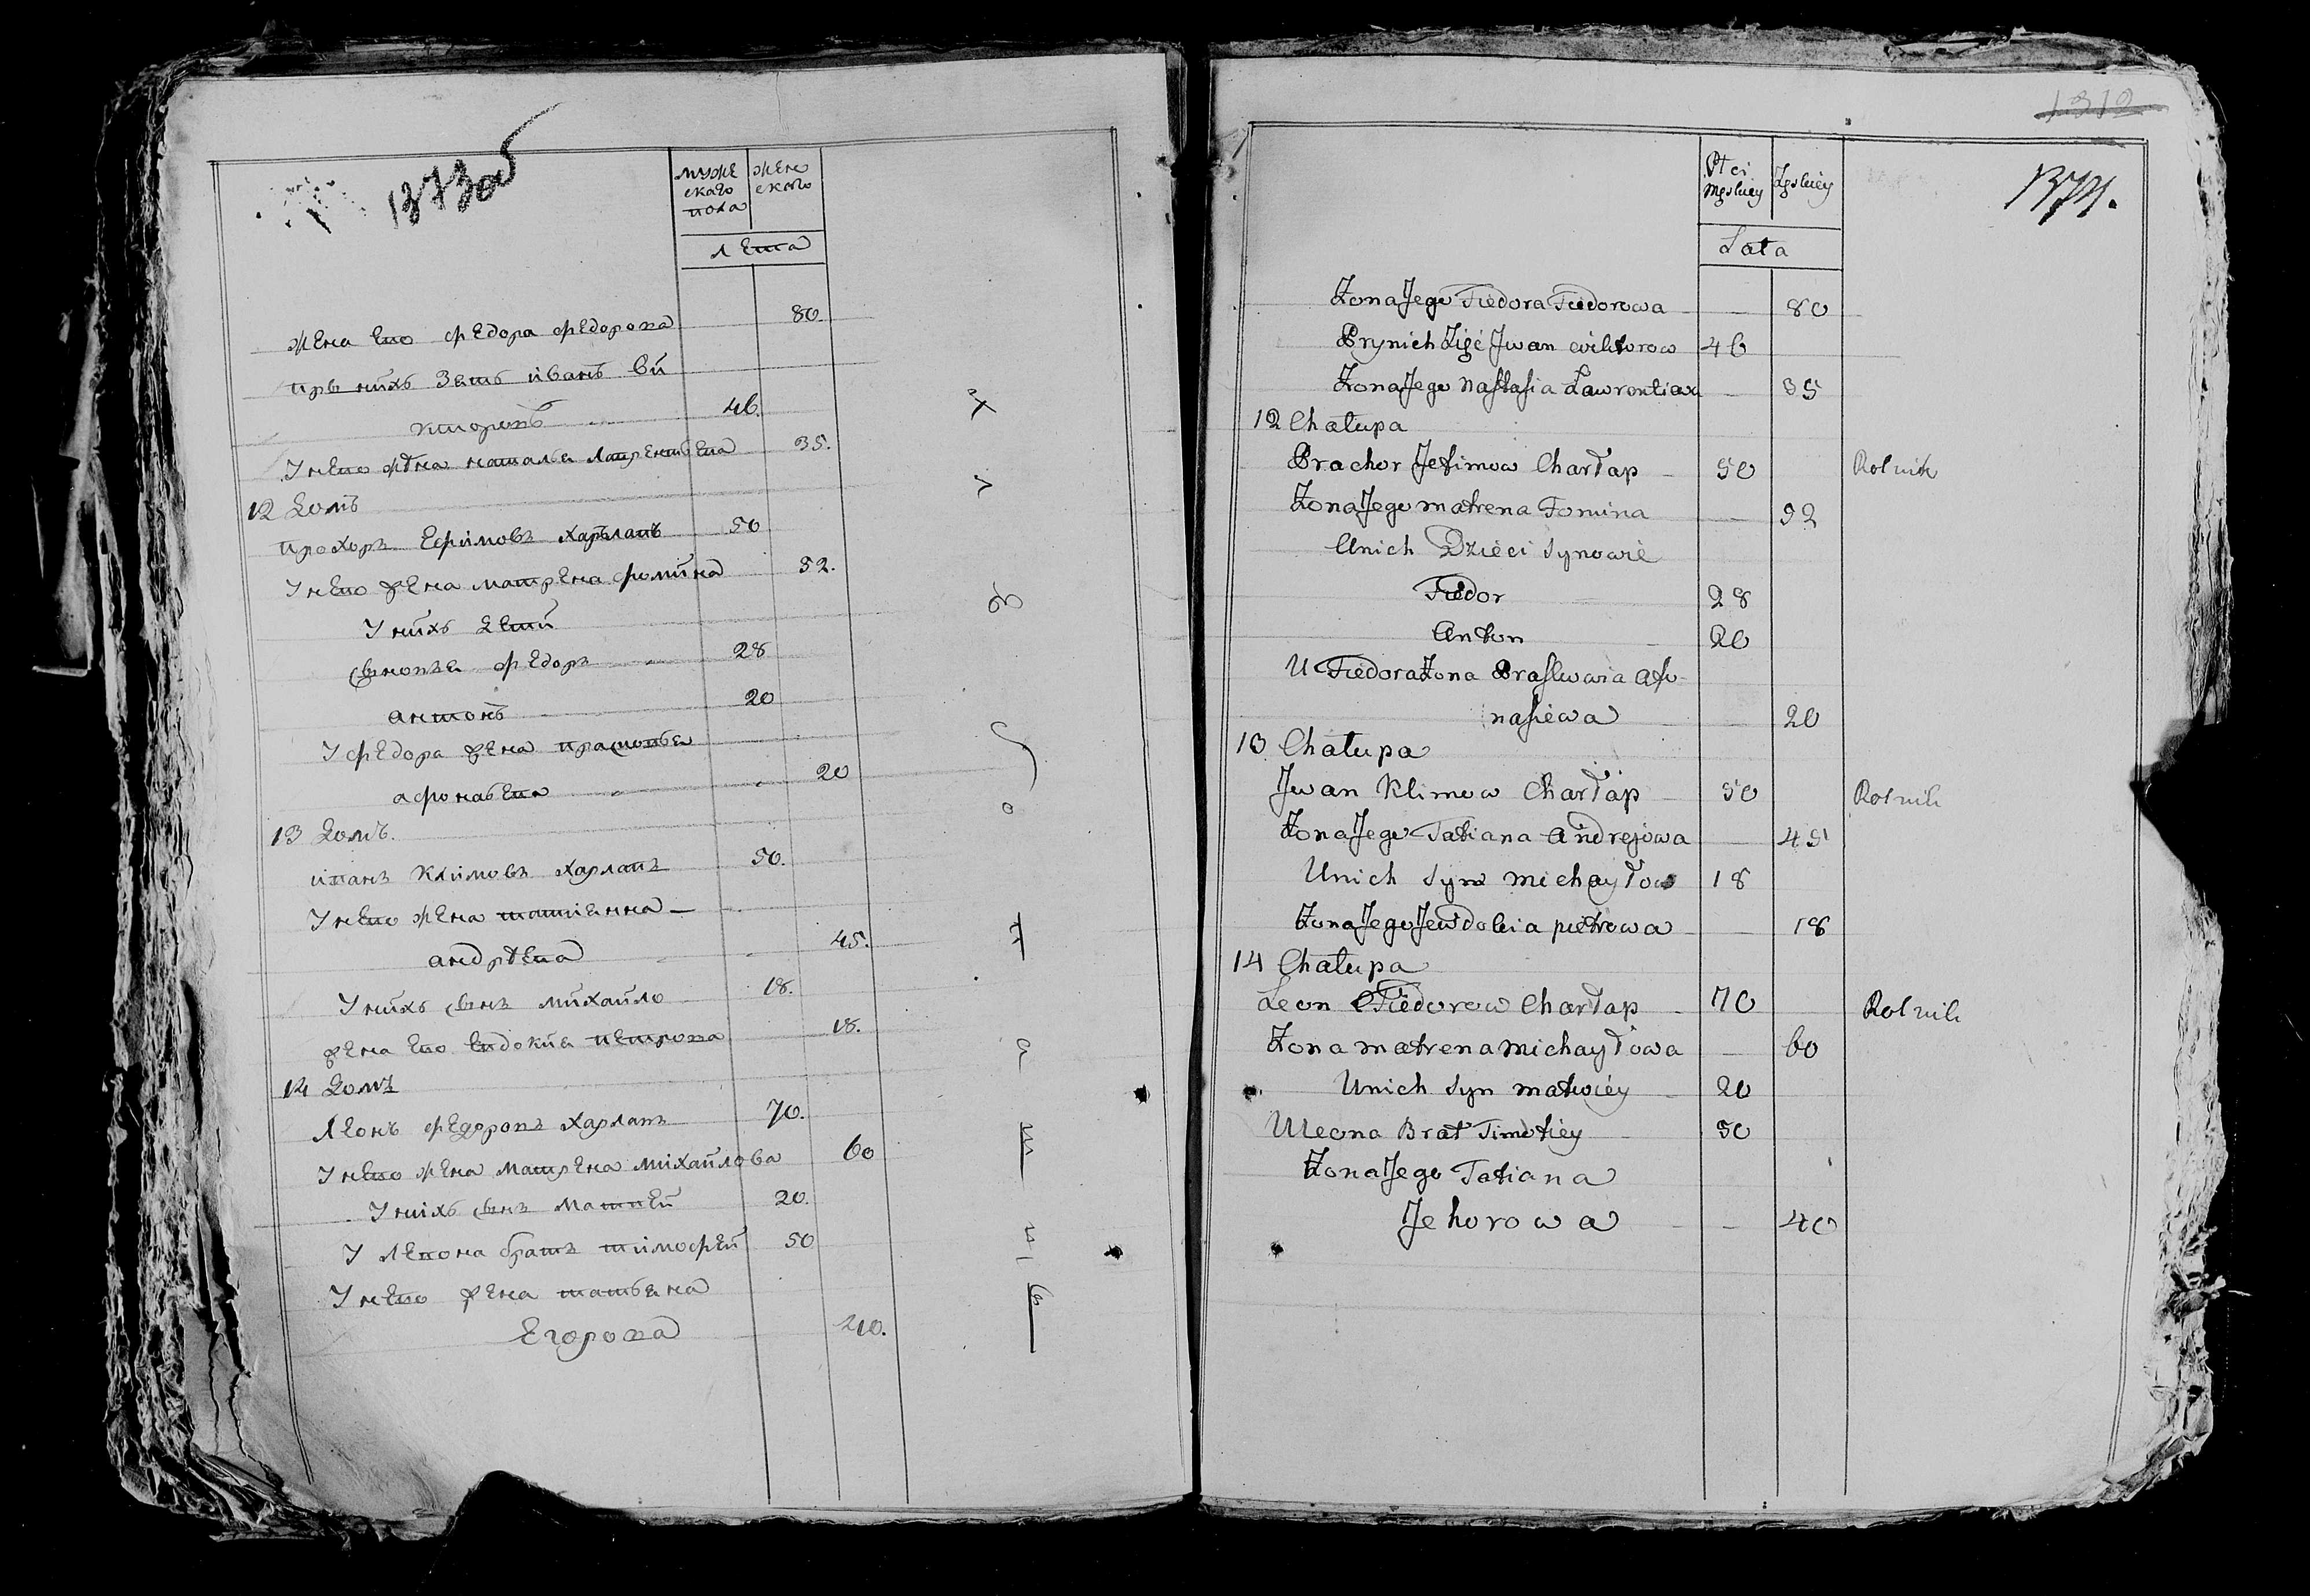 1373об
муже
ского
пола
жен
ского
лета
жена его федора федорова 80.
при нихъ зеть иванъ ви
кторовъ 46.
У него жѣна наталья Лаврентьева 35.
12 Домъ
прохоръ Ефимовъ харлапъ 50
У него жена матрена фомина 52.
У нихъ дети
сыновья федоръ 28
антонъ 20
У федора жена прасковья
афонасьева 20
13 Домъ.
иванъ Климовъ харлапъ 50.
У него жена татиянна
андрѣева 45.
У нихъ сынъ михайло 18.
жена его евдокия петрова 18.
14 Домъ
Леонъ федоровъ харлапъ 70.
У него жена матрена михайлова 60
У нихъ сынъ матвей 20.
У Левона братъ тимофей 50
У него жена татьяна
Егорова 40.
х
л
ѣ
о
п
а
ш
е
ц
1312
1374.
Płci
Męskiey
Żęskiéy
Lata
Żona Jego Fiedora Fiedorowa 80
Prynich Zięć Jwan Wiktorow 46
Żona Jego Nastasia Lawrentiewa 35
12 Chałupa
Prachor Jefimow Charłap 50 Rolnik
Żona Jego Matrena Fomina 52
Unich Dzieci Synowie
Fiedor 28
Anton 20
U Fiedora Żona Praskowia Afo-
nasiewa 20
13 Chałupa
Jwan Klimow Charłap 50 Rolnik
Żona Jego Tatiana Andrejewa 45
Unich Syn Michayłow 18
Żona Jego Jewdokia Pietrowa 18
14 Chałupa
Leon Fiedorow Charłap 70 Rolnik
Żona Matrena Michayłowa 60
Unich Syn Matwiéy 20
U Leona Brat Timofiéy 50
Żona Jego Tatiana
Jehorowa 40